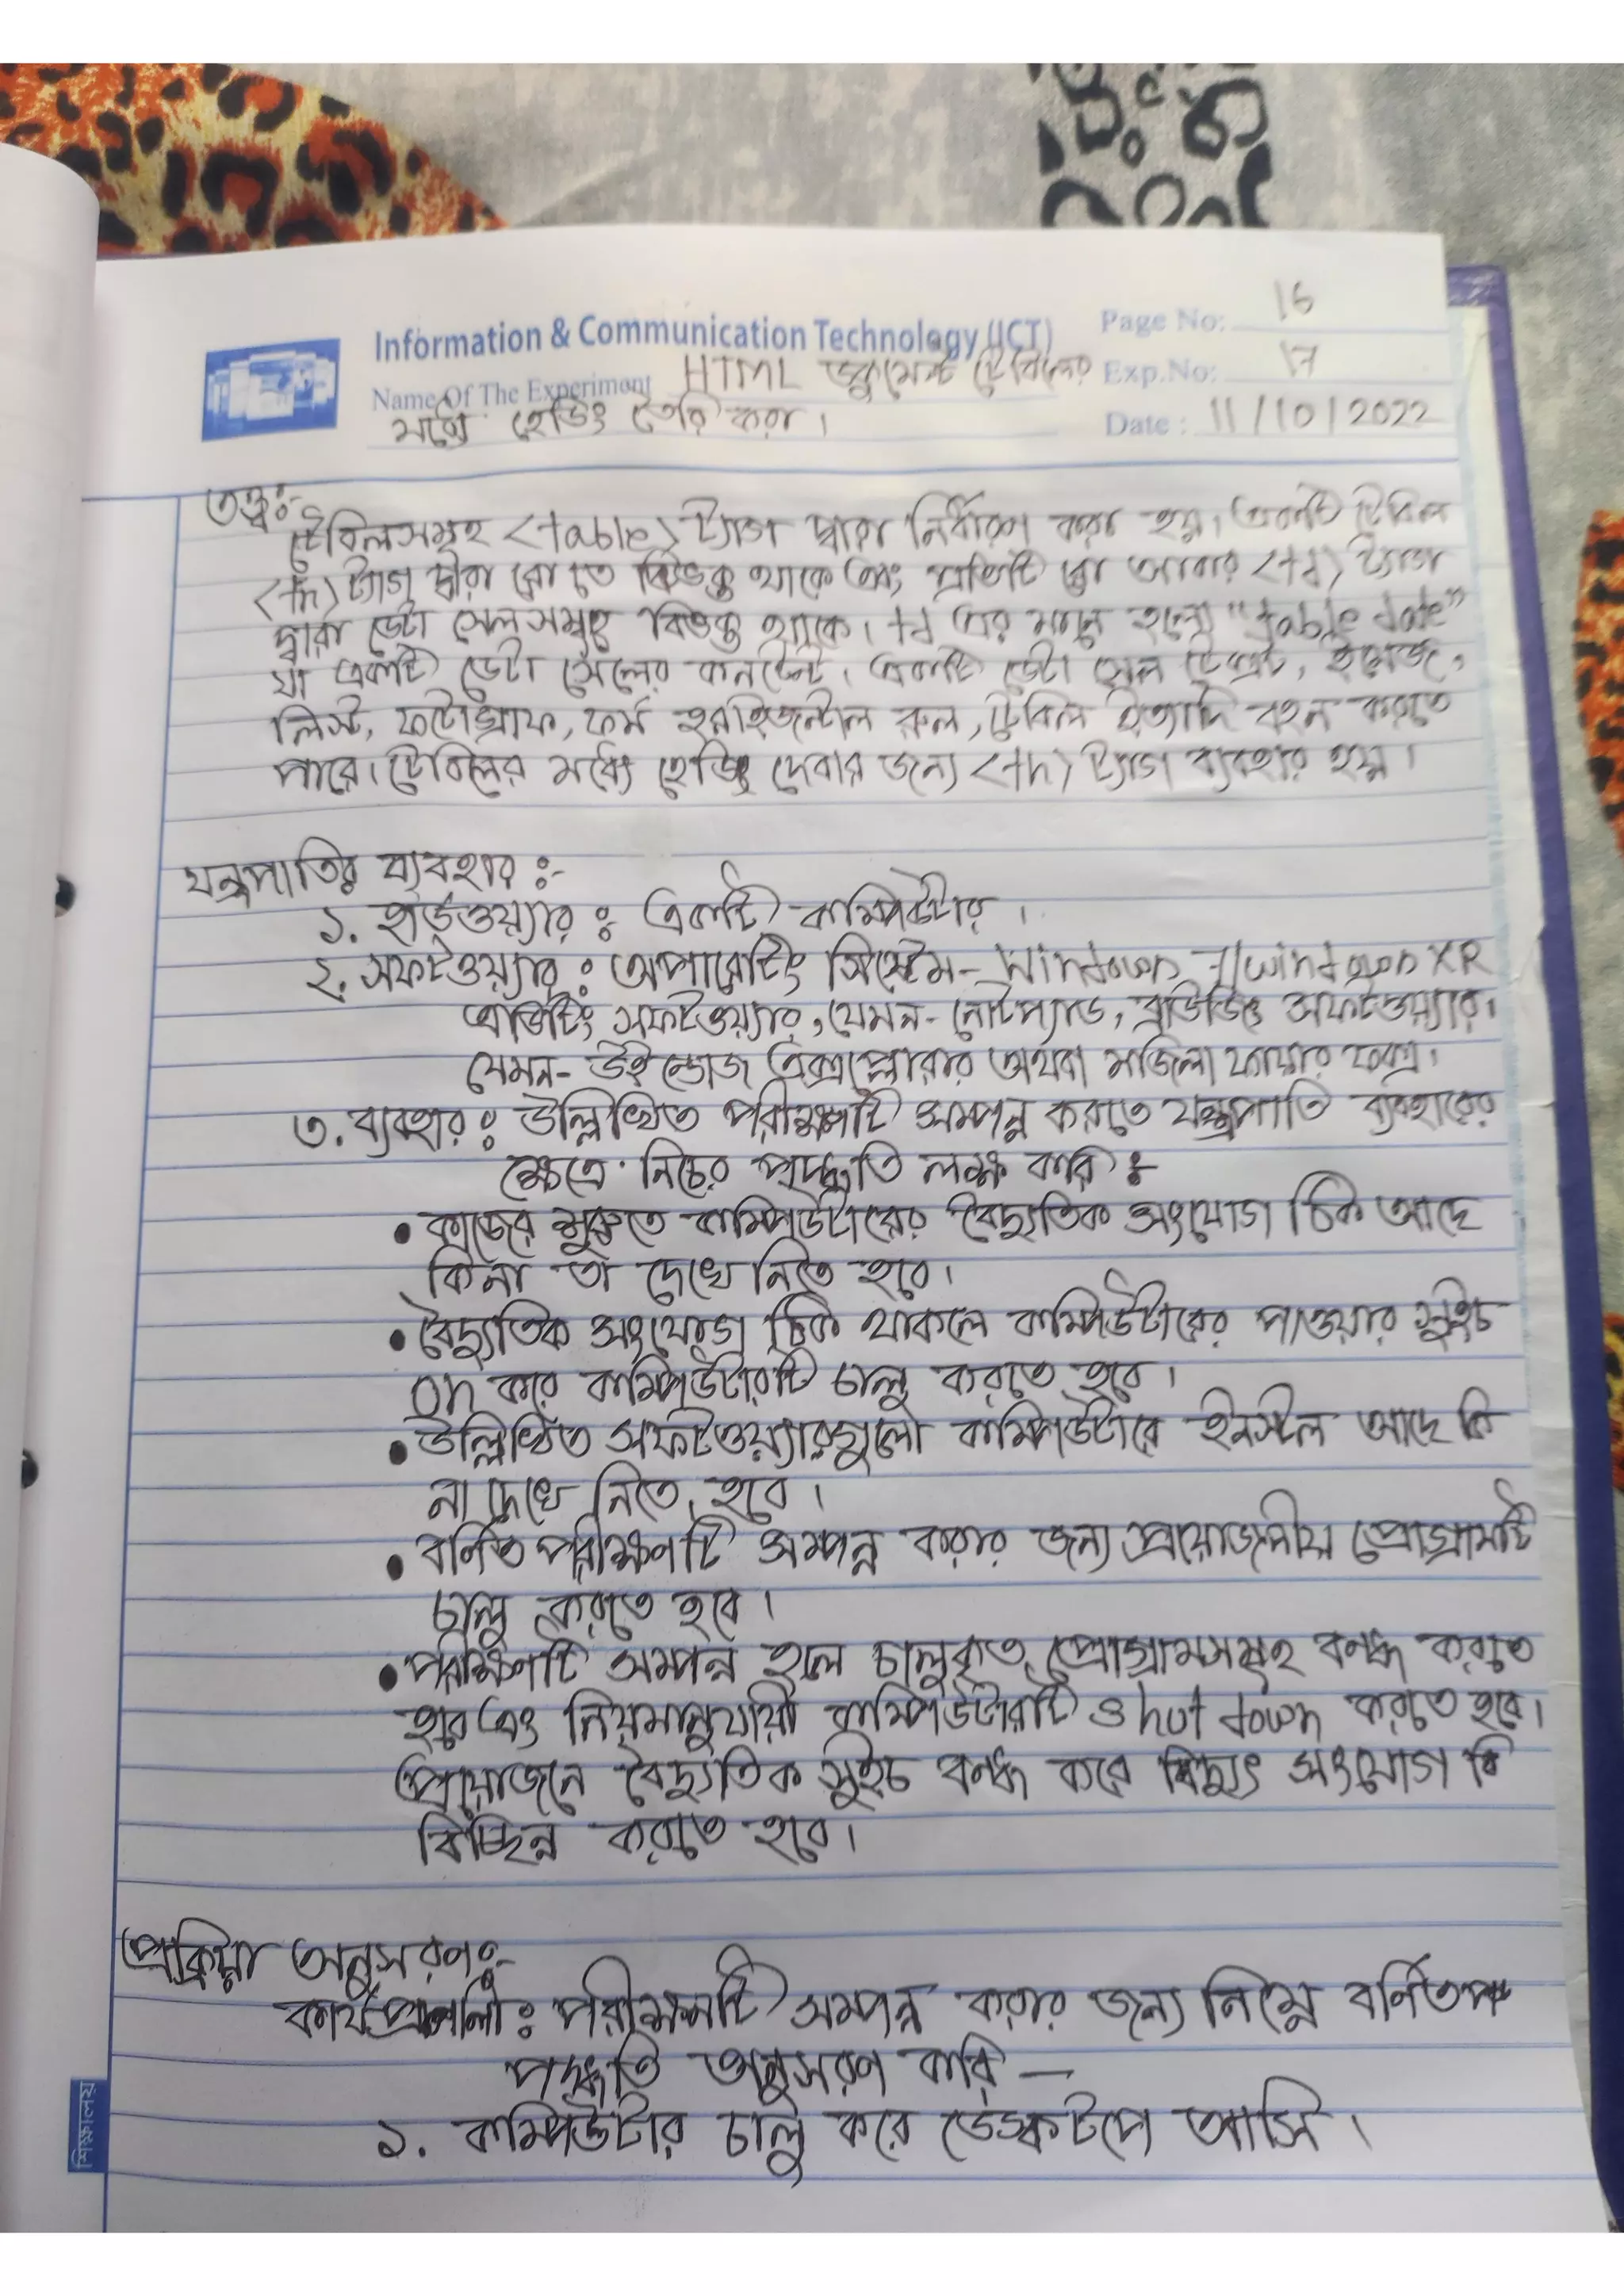 Information & Communication Technology (ICT)
Page No: 16
Name Of The Experiment HTML ডকুমেন্ট টেবিলের
Exp.No: 17
মধ্যে হেডিং তৈরি করা।
Date : 11/10/2022
তত্ত্ব:-
টেবিলসমূহ <table> ট্যাগ দ্বারা নির্ধারণ করা হয়। একটি টেবিল
<th> ট্যাগ দ্বারা রো তে বিভক্ত থাকে এবং প্রতিটি রো আবার <td> ট্যাগ
দ্বারা ডেটা সেলসমূহে বিভক্ত থাকে। td এর মানে হলো "table date"
যা একটি ডেটা সেলের কনটেন্ট। একটি ডেটা সেল টেক্সট, ইমেজ,
লিস্ট, ফটোগ্রাফ, ফর্ম হরাইজন্টাল রুল, টেবিল ইত্যাদি বহন করতে
পারে। টেবিলের মধ্যে হেডিং দেবার জন্য <th> ট্যাগ ব্যবহার হয়।
যন্ত্রপাতির ব্যবহার :-
১. হার্ডওয়্যার : একটি কম্পিউটার।
২. সফটওয়্যার : অপারেটিং সিস্টেম- Window 7/window XP
এডিটিং সফটওয়্যার, যেমন- নোটপ্যাড, ব্রাউজিং সফটওয়্যার।
যেমন- উইন্ডোজ এক্সপ্লোরার অথবা মজিলা ফায়ার ফক্স।
৩. ব্যবহার : উল্লিখিত পরীক্ষণটি সম্পন্ন করতে যন্ত্রপাতি ব্যবহারের
ক্ষেত্রে নিচের পদ্ধতি লক্ষ করি :-
• কাজের শুরুতে কম্পিউটারের বৈদ্যুতিক সংযোগ ঠিক আছে
কিনা তা দেখে নিতে হবে।
• বৈদ্যুতিক সংযোগ ঠিক থাকলে কম্পিউটারের পাওয়ার সুইচ
on করে কম্পিউটারটি চালু করতে হবে।
• উল্লিখিত সফটওয়্যারগুলো কম্পিউটারে ইনস্টল আছে কি
না দেখে নিতে হবে।
• বর্ণিত পরীক্ষণটি সম্পন্ন করার জন্য প্রয়োজনীয় প্রোগ্রামটি
চালু করতে হবে।
• পরীক্ষণটি সম্পন্ন হলে চালুকৃত প্রোগ্রামসমূহ বন্ধ করতে
হবে এবং নিয়মানুযায়ী কম্পিউটারটি shut down করতে হবে।
প্রয়োজনে বৈদ্যুতিক সুইচ বন্ধ করে বিদ্যুৎ সংযোগ বি
বিচ্ছিন্ন করতে হবে।
প্রক্রিয়া অনুসরণ:-
কার্যপ্রণালী : পরীক্ষণটি সম্পন্ন করার জন্য নিম্নে বর্ণিত
পদ্ধতি অনুসরণ করি —
১. কম্পিউটার চালু করে ডেস্কটপে আসি।
শিক্ষালয়